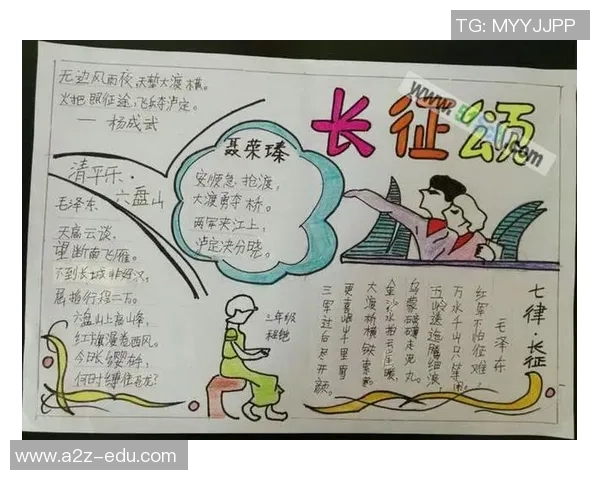 TG: MYYJJPP
长征颂
无边风雨夜，天堑大渡横。
火把照征途，飞夺泸定。
— 杨成武
清平乐·
六盘山
毛泽东
天高云谈，
望断南飞雁。
不到长城非好汉，
屈指行程二万。
六盘山上高山峰，
红旗漫卷西风。
今日长缨在手，
何时缚住苍龙？
聂荣臻
安顺急抢渡，
大渡勇夺桥。
两军夹江上，
泸定决分晓。
三年级
七律·长征
毛泽东
红军不怕征难，
万水千山只等闲
五岭逶迤腾细浪，
乌蒙磅礴走泥丸。
金沙水拍云崖暖，
大渡桥横铁索寒
更喜岷山千里雪
三军过后尽开颜。
www.a2z-edu.com